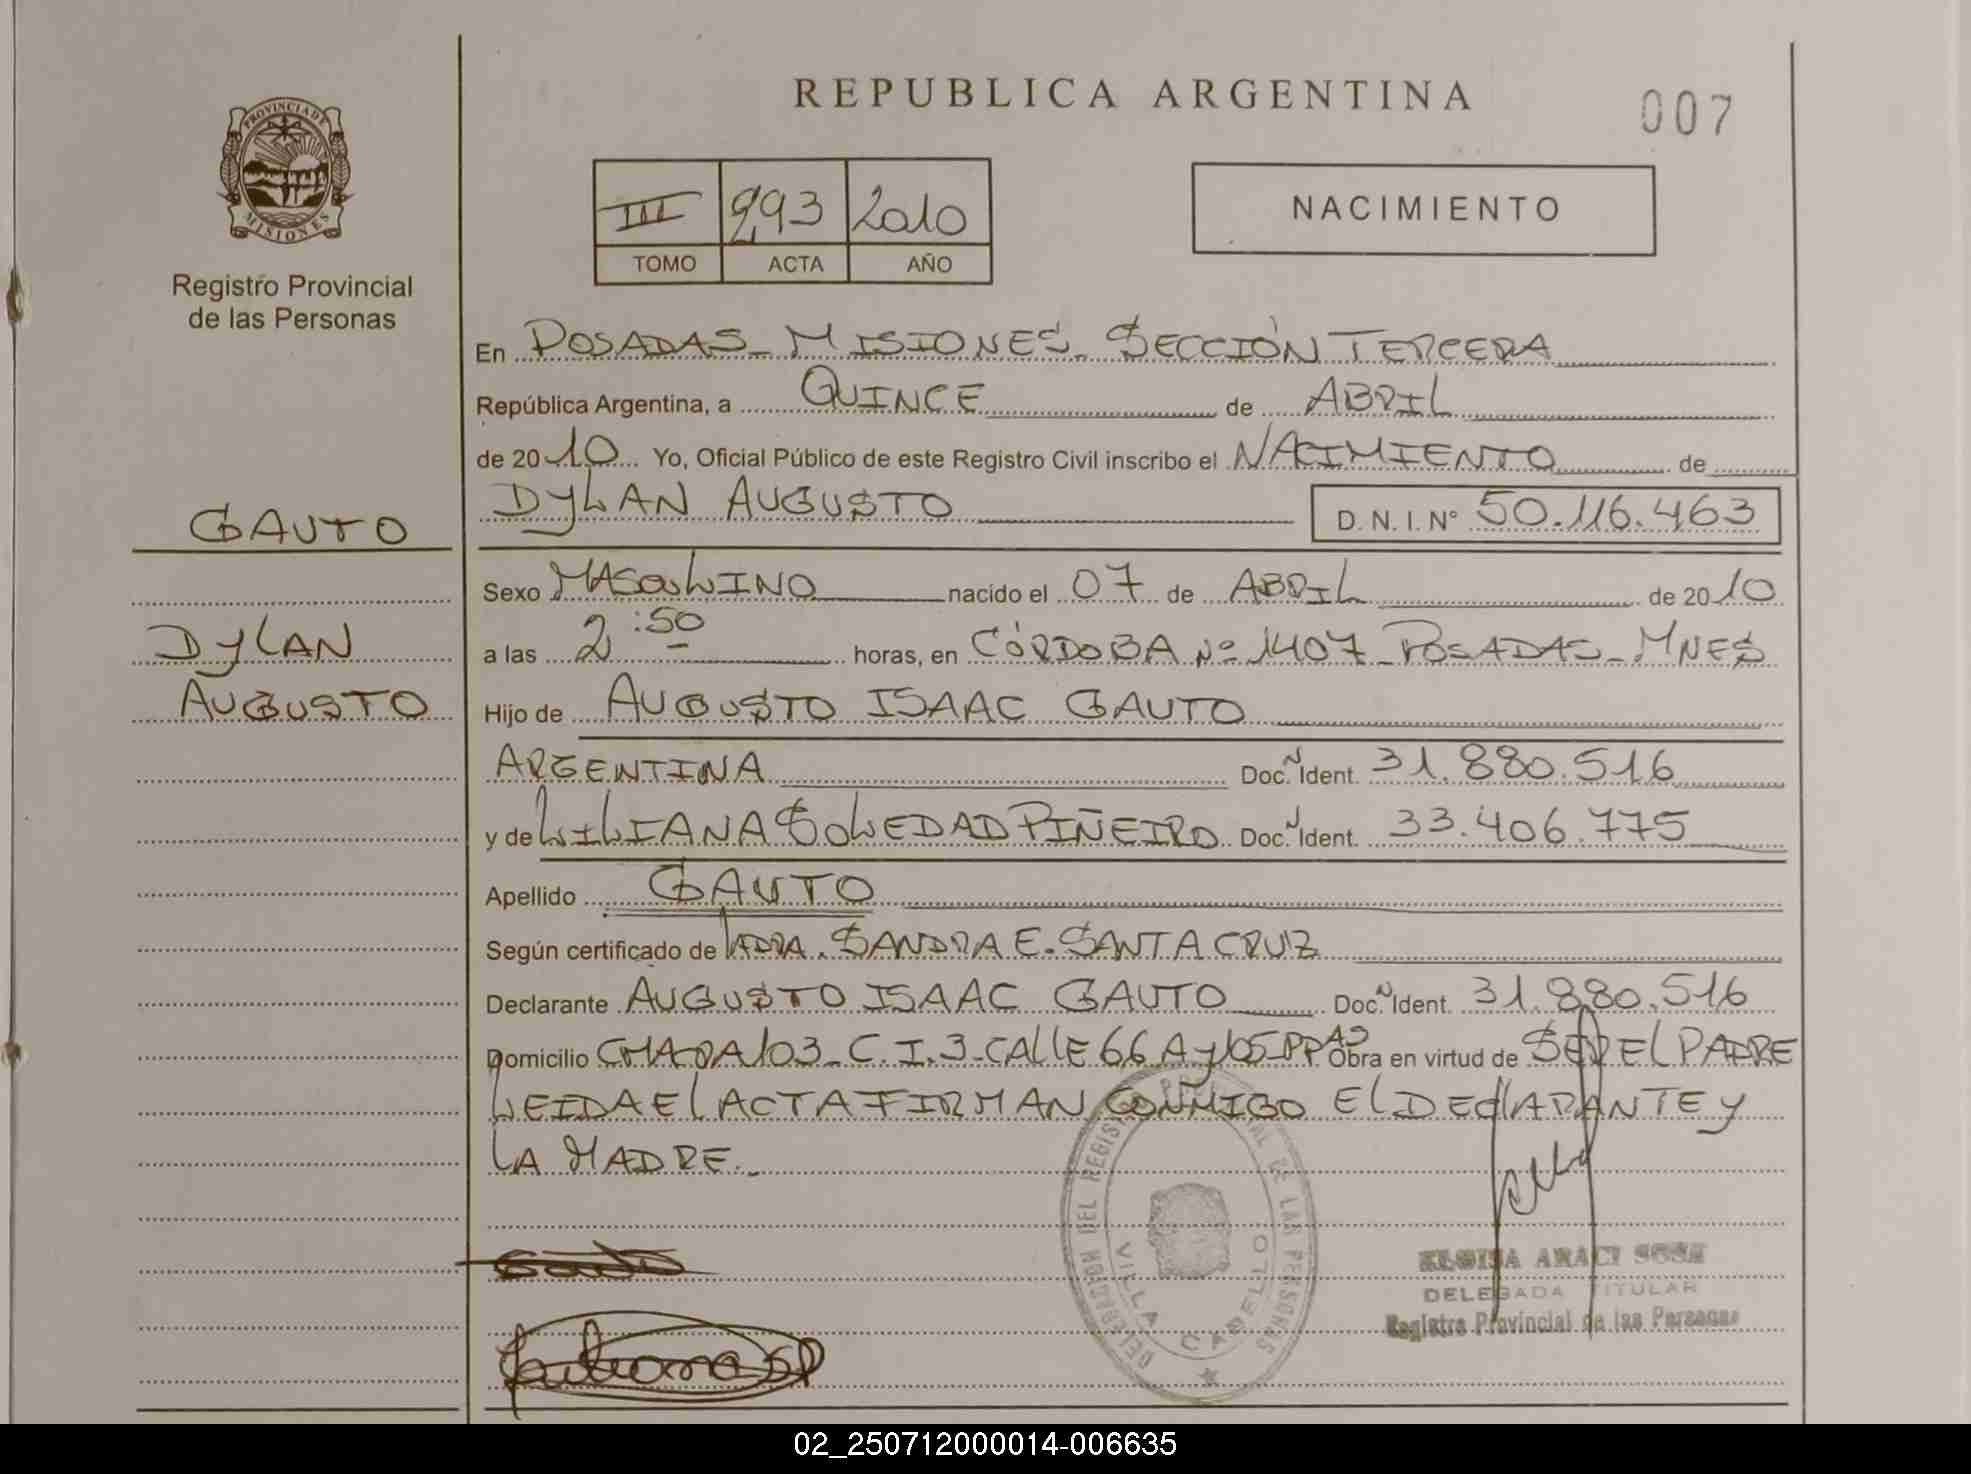 REPUBLICA ARGENTINA
007
PROVINCIA DE MISIONES
Registro Provincial
de las Personas
III 293 2010
TOMO ACTA AÑO
NACIMIENTO
En POSADAS - MISIONES - SECCIÓN TERCERA
República Argentina, a QUINCE de ABRIL
de 2010 Yo, Oficial Público de este Registro Civil inscribo el NACIMIENTO de
DYLAN AUGUSTO D.N.I. Nº 50.116.463
GAUTO
DYLAN
AUGUSTO
Sexo MASCULINO nacido el 07 de ABRIL de 2010
a las 2:50 horas, en CÓRDOBA Nº 1407 - POSADAS - MNES
Hijo de AUGUSTO ISAAC GAUTO
ARGENTINA Doc. Ident. 31.880.516
y de LILIANA SOLEDAD PIÑEIRO Doc. Ident. 33.406.775
Apellido GAUTO
Según certificado de LA DRA. SANDRA E. SANTA CRUZ
Declarante AUGUSTO ISAAC GAUTO Doc. Ident. 31.880.516
Domicilio CHACRA 103 - C.I. 3 - CALLE 66 A y 105 - PPAS Obra en virtud de SER EL PADRE
LEIDA EL ACTA FIRMAN CONMIGO EL DECLARANTE Y
LA MADRE.-
DELEGACION DEL REGISTRO PROVINCIAL DE LAS PERSONAS
VILLA CABELLO
ELOISA ARACI SOSA
DELEGADA TITULAR
Registro Provincial de las Personas
02_250712000014-006635